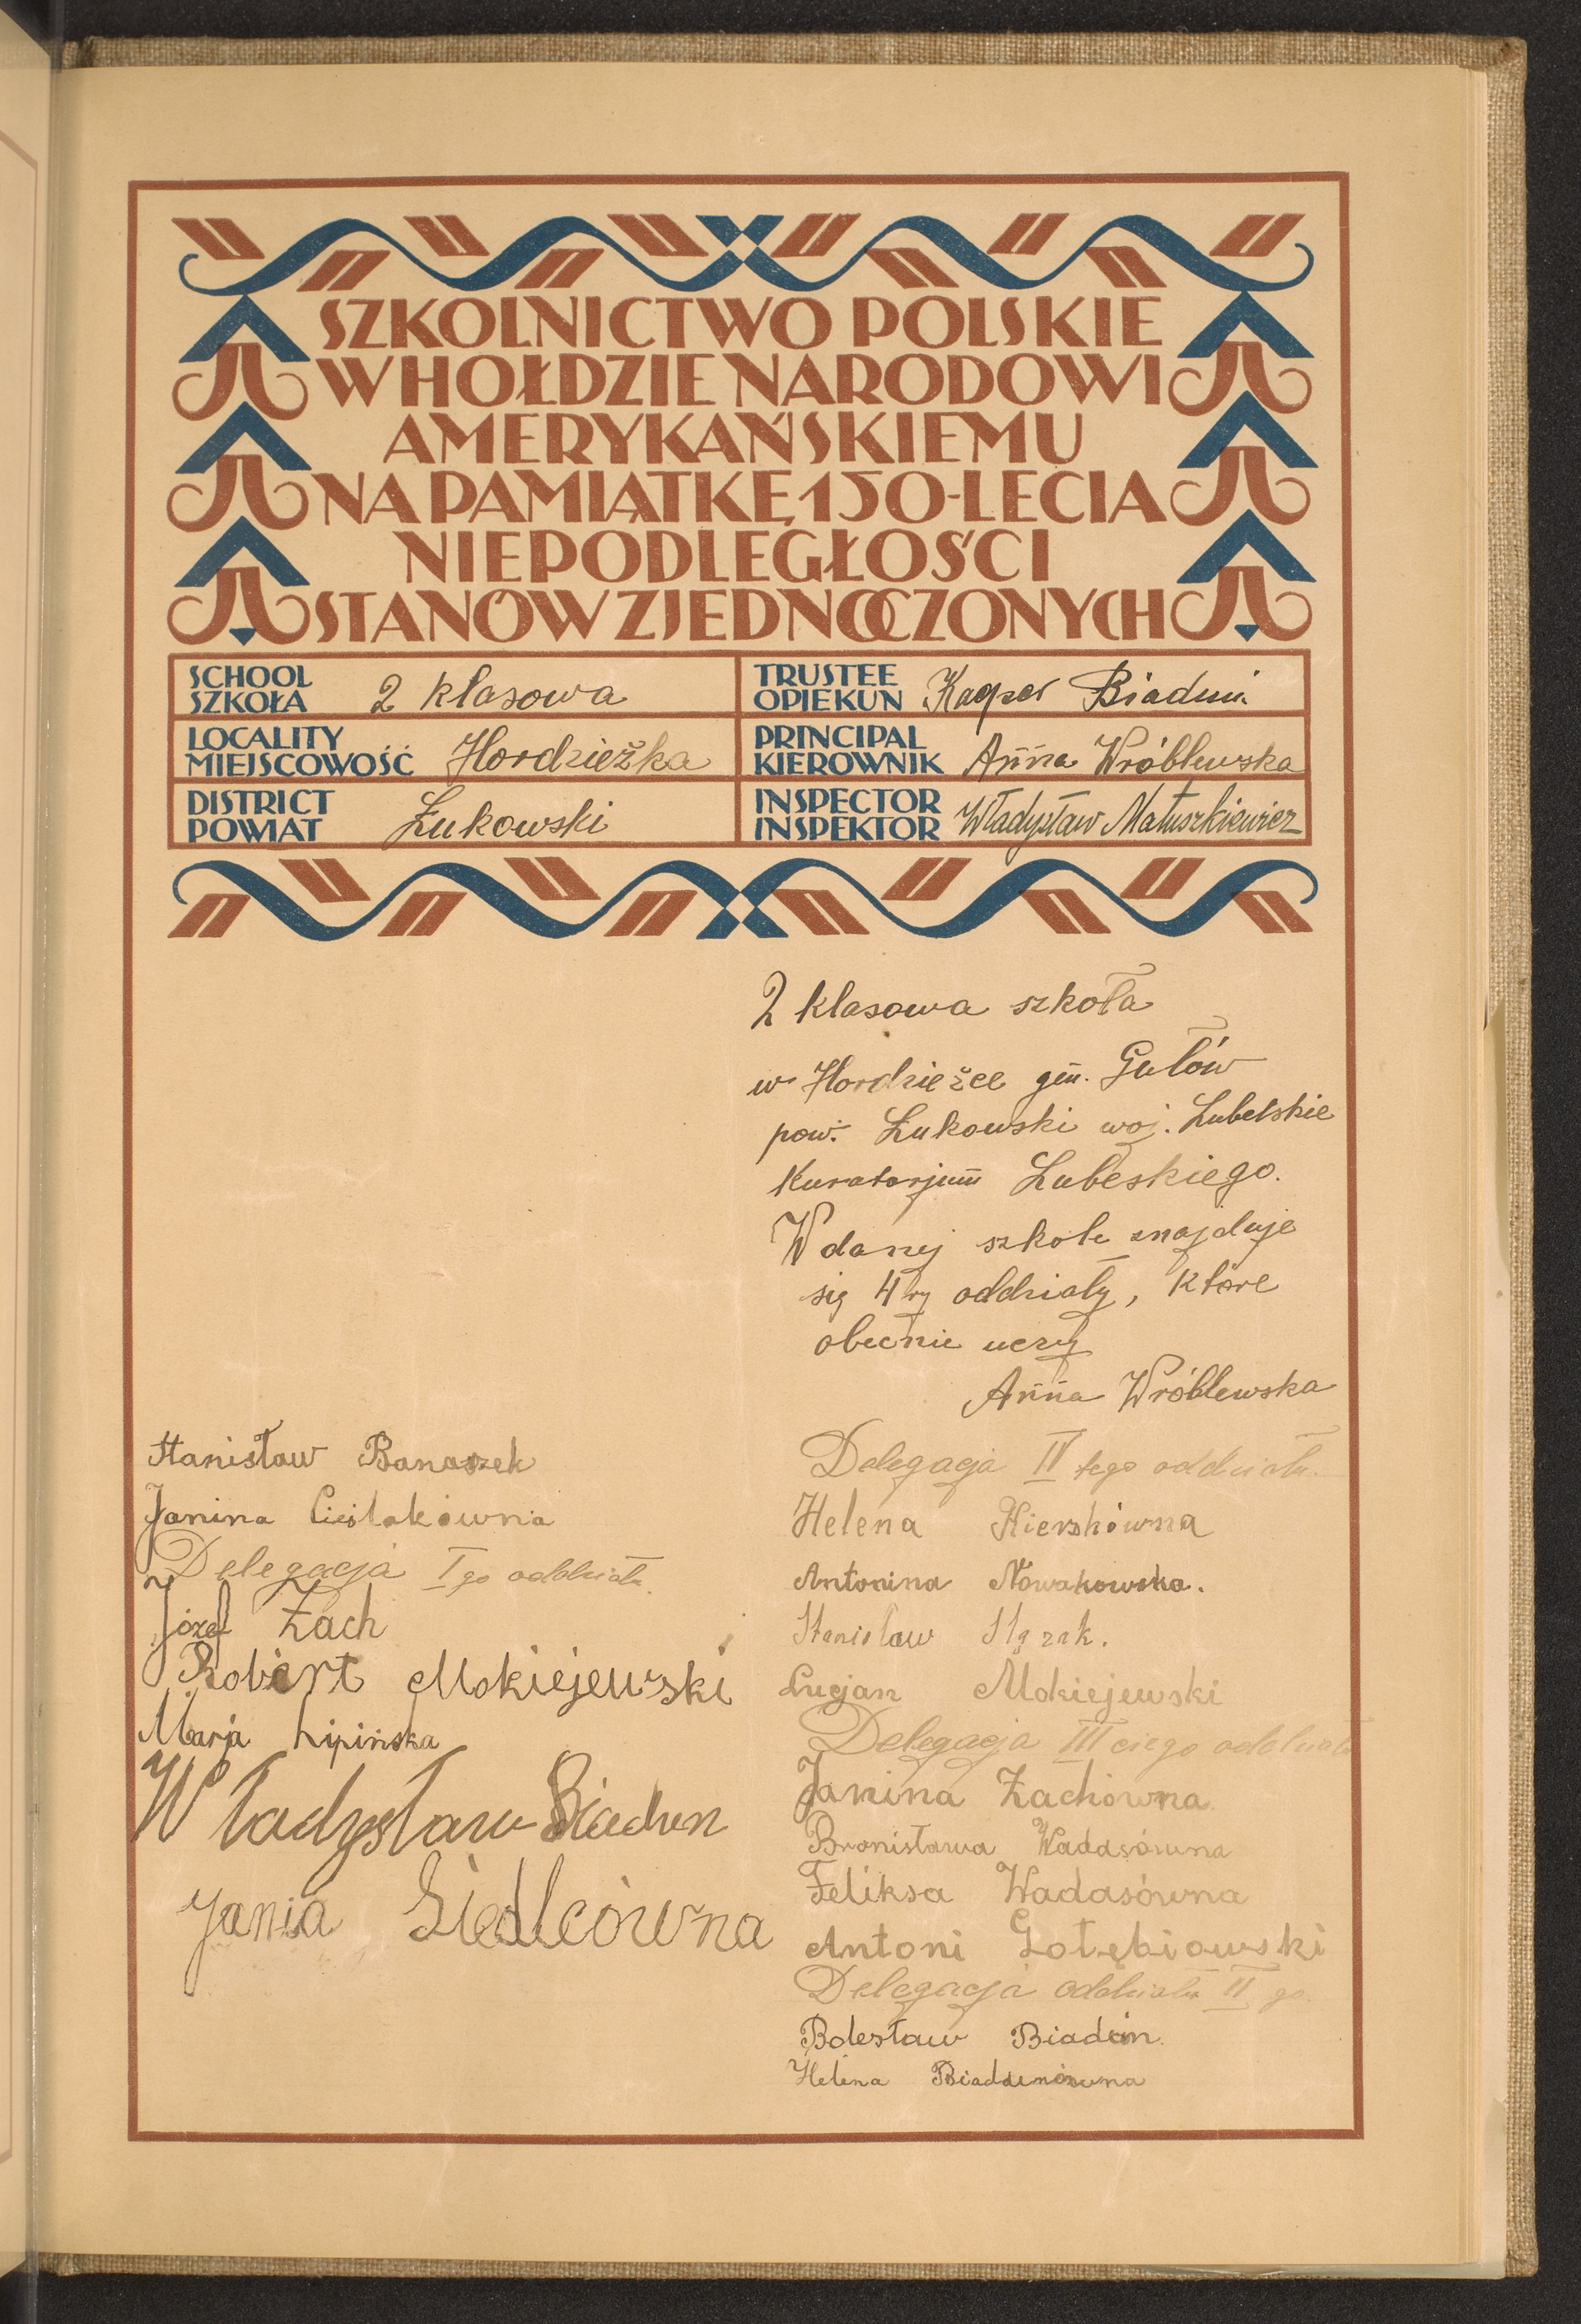 SZKOLNICTWO POLSKIE
W HOŁDZIE NARODOWI
AMERYKAŃSKIEMU
NA PAMIĄTKĘ 150-LECIA
NIEPODLEGŁOŚCI
STANÓW ZJEDNOCZONYCH
SCHOOL
SZKOŁA 2 klasowa
TRUSTEE
OPIEKUN Kacper Biaduń
LOCALITY
MIEJSCOWOŚĆ Hordzieżka
PRINCIPAL
KIEROWNIK Anna Wróblewska
DISTRICT
POWIAT Łukowski
INSPECTOR
INSPEKTOR Władysław Matuszkiewicz
2 klasowa szkoła
w Hordzieżce gm. Gułów
pow. Łukowski woj. Lubelskie
Kuratorjum Lubeskiego.
W danej szkole znajduje
się 4ry oddziały, które
obecnie uczy
Anna Wróblewska
Delegacja IV tego oddziału.
Helena Kierskówna
Antonina Nowakowska.
Stanisław
Lucjan Mokiejewski
Delegacja III ciego oddziału
Janina Żachówna
Bronisława Wadasówna
Feliksa Wadasówna
Antoni Gołębiowski
Delegacja oddziału II go.
Bolesław Biaduń.
Helena Biaduniówna
Stanisław Banaszek
Janina Cieślakówna
Delegacja I go oddziału.
Józef Żach
Robert Mokiejewski
Marja Lipińska
Władysław Biadun
Jania Siedlcówna